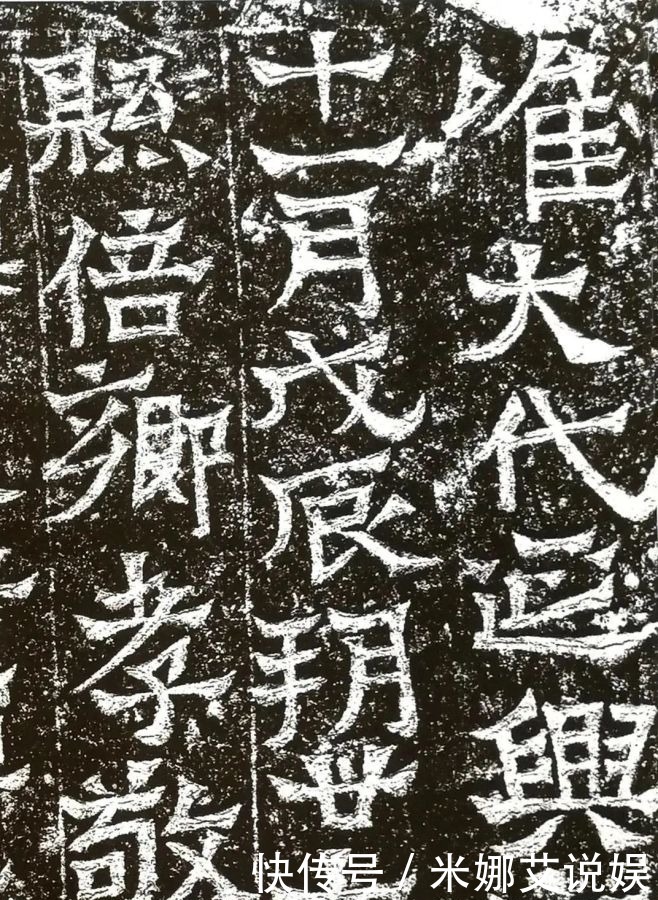 唯大代延興
十一月戊辰朔廿
縣倍鄉孝敬
快传号 / 米娜艾说娱